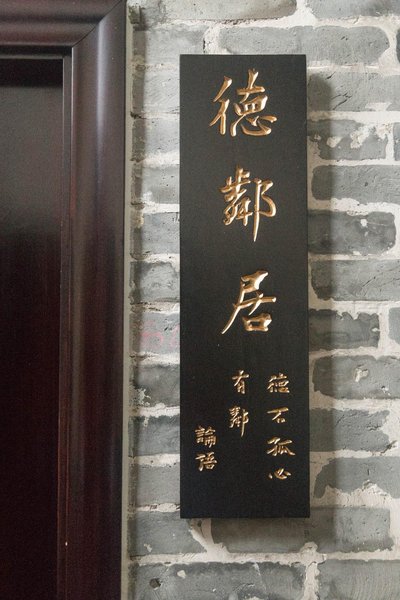 德鄰居
德不孤必
有鄰
論語